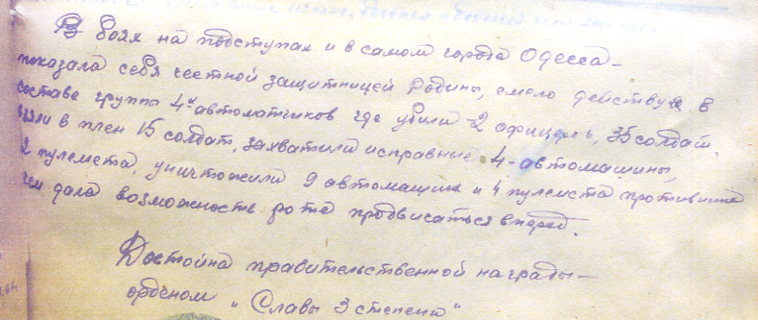 В боях на подступах и в самом города Одесса-
показала себя честной защитницей Родины, смело действуя в
составе группа 4х автоматчиков где убили 2 офицера, 35 солдат,
взяли в плен 15 солдат, захватили исправные 4-автомашины,
2 пулемета, уничтожили 9 автомашин и 4 пулемета противника
чем дала возможность рота продвигаться вперед.
Достойна правительственной награды-
орденом „Славы 3 степени“